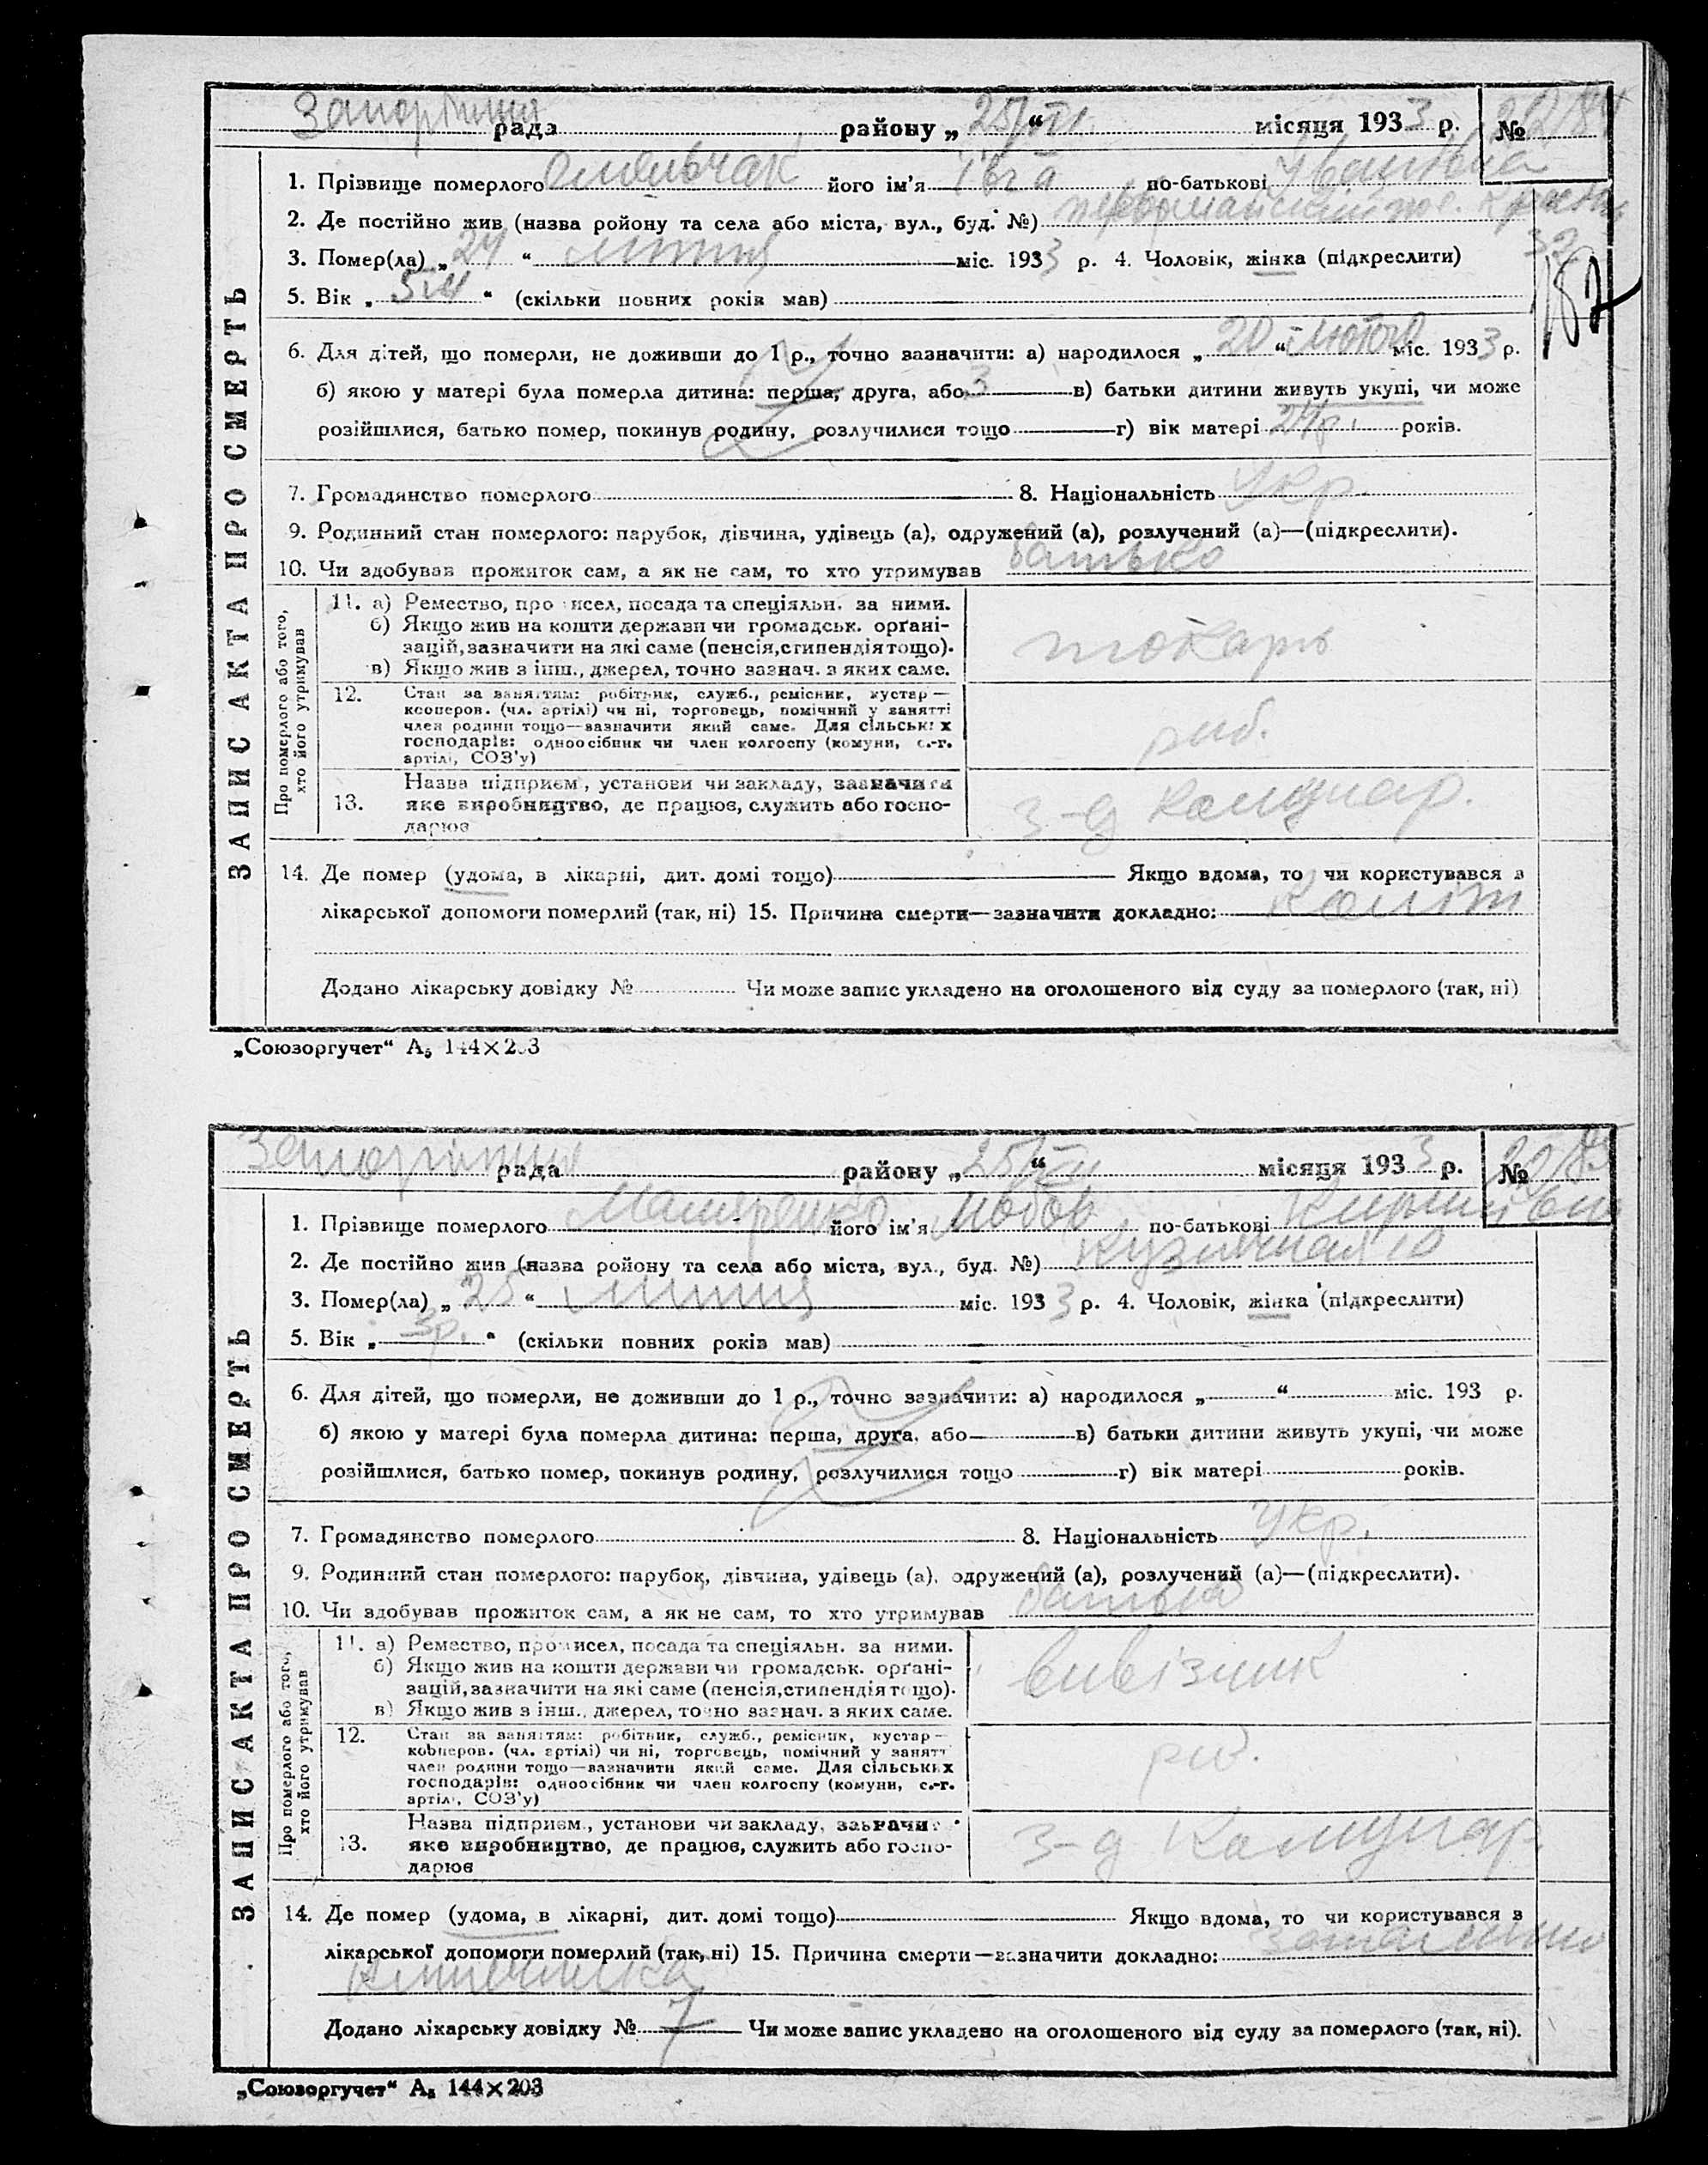 Запоріжжя рада району „25/VII“ місяця 1933 р. №
1. Прізвище померлого Омельчак його ім'я Ївга по-батькові Іванівна
2. Де постійно жив (назва ройону та села або міста, вул., буд. №) первомайский пос.
3. Помер(ла) „24“ липня міс. 1933 р. 4. Чоловік, жінка (підкреслити)
32
187
5. Вік „5 м“ (скільки повних років мав)
6. Для дітей, що померли, не доживши до 1 р., точно зазначити: а) народилося „20“ лютого міс. 1933 р.
б) якою у матері була померла дитина: перша, друга, або 3 в) батьки дитини живуть укупі, чи може
розійшлися, батько помер, покинув родину, розлучилися тощо г) вік матері 24р. років.
7. Громадянство померлого 8. Національність Укр.
9. Родинний стан померлого: парубок, дівчина, удівець (а), одружений (а), розлучений (а)—(підкреслити).
10. Чи здобував прожиток сам, а як не сам, то хто утримував батько
ЗАПИС АКТА ПРО СМЕРТЬ
Про померлого або того, хто його утримував
11. а) Ремество, промисел, посада та спеціяльн. за ними.
б) Якщо жив на кошти держави чи громадськ. орґані-
зацій, зазначити на які саме (пенсія, стипендія тощо).
в) Якщо жив з інш., джерел, точно зазнач. з яких саме.
токарь
12. Стан за заняттям: робітник, служб., ремісник, кустар—
кооперов. (чл. артілі) чи ні, торговець, помічний у занятті
член родини тощо—зазначити який саме. Для сільських
господарів: одноосібник чи член колгоспу (комуни, с.-г.
артілі, СОЗ'у)
роб.
13. Назва підприєм., установи чи закладу, зазначити
яке виробництво, де працює, служить або госпо-
дарює
з-д Комунар.
14. Де помер (удома, в лікарні, дит. домі тощо) Якщо вдома, то чи користувався з
лікарської допомоги померлий (так, ні) 15. Причина смерти—зазначити докладно: Коліт
Додано лікарську довідку № Чи може запис укладено на оголошеного від суду за померлого (так, ні)
„Союзоргучет“ А₅ 144×203
Запоріжжя рада району „25/VII“ місяця 1933 р. №
1. Прізвище померлого його ім'я Любов по-батькові
2. Де постійно жив (назва ройону та села або міста, вул., буд. №) Кузнечная 10
3. Помер(ла) „25“ липня міс. 1933 р. 4. Чоловік, жінка (підкреслити)
5. Вік „3р.“ (скільки повних років мав)
6. Для дітей, що померли, не доживши до 1 р., точно зазначити: а) народилося „ “ міс. 193 р.
б) якою у матері була померла дитина: перша, друга, або в) батьки дитини живуть укупі, чи може
розійшлися, батько помер, покинув родину, розлучилися тощо г) вік матері років.
7. Громадянство померлого 8. Національність Укр.
9. Родинний стан померлого: парубок, дівчина, удівець (а), одружений (а), розлучений (а)—(підкреслити).
10. Чи здобував прожиток сам, а як не сам, то хто утримував батько
ЗАПИС АКТА ПРО СМЕРТЬ
Про померлого або того, хто його утримував
11. а) Ремество, промисел, посада та спеціяльн. за ними.
б) Якщо жив на кошти держави чи громадськ. орґані-
зацій, зазначити на які саме (пенсія, стипендія тощо).
в) Якщо жив з інш., джерел, точно зазнач. з яких саме.
візник
12. Стан за заняттям: робітник, служб., ремісник, кустар—
кооперов. (чл. артілі) чи ні, торговець, помічний у занятт
член родини тощо—зазначити який саме. Для сільських
господарів: одноосібник чи член колгоспу (комуни, с.-г.
артілі, СОЗ'у)
роб.
13. Назва підприєм., установи чи закладу, зазначити
яке виробництво, де працює, служить або госпо-
дарює
з-д Комунар.
14. Де помер (удома, в лікарні, дит. домі тощо) Якщо вдома, то чи користувався з
лікарської допомоги померлий (так, ні) 15. Причина смерти—зазначити докладно: запалення
кишечника
Додано лікарську довідку № 7 Чи може запис укладено на оголошеного від суду за померлого (так, ні).
„Союзоргучет“ А₅ 144×203